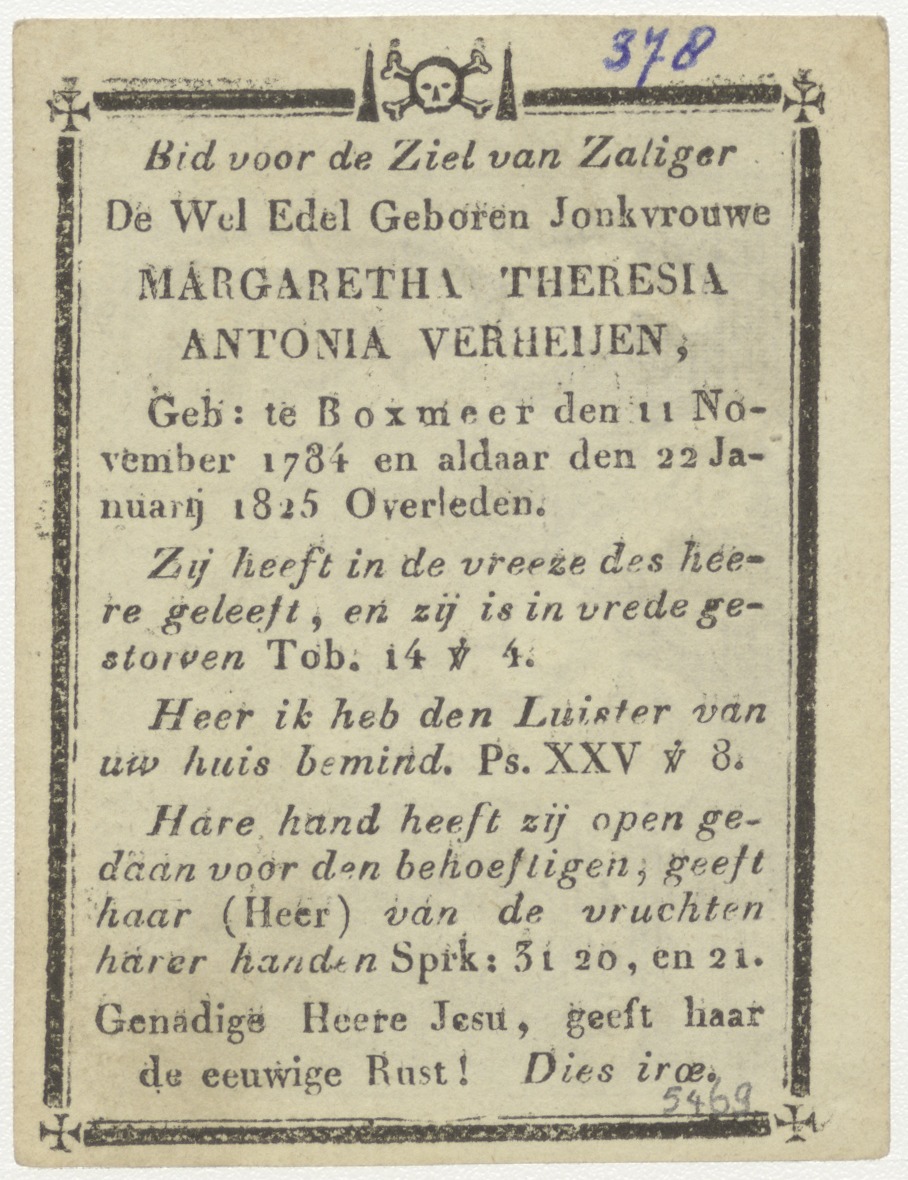 378
Bid voor de Ziel van Zaliger
De Wel Edel Geboren Jonkvrouwe
MARGARETHA THERESIA
ANTONIA VERHEIJEN,
Geb: te Boxmeer den 11 No-
vember 1784 en aldaar den 22 Ja-
nuarij 1825 Overleden.
Zij heeft in de vreeze des hee-
re geleeft, en zij is in vrede ge-
storven Tob. 14 ℣ 4.
Heer ik heb den Luister van
uw huis bemind. Ps. XXV ℣ 8.
Hare hand heeft zij open ge-
daan voor den behoeftigen, geeft
haar (Heer) van de vruchten
harer handen Sprk: 31 20, en 21.
Genadige Heere Jesu, geeft haar
de eeuwige Rust! Dies iræ.
5469